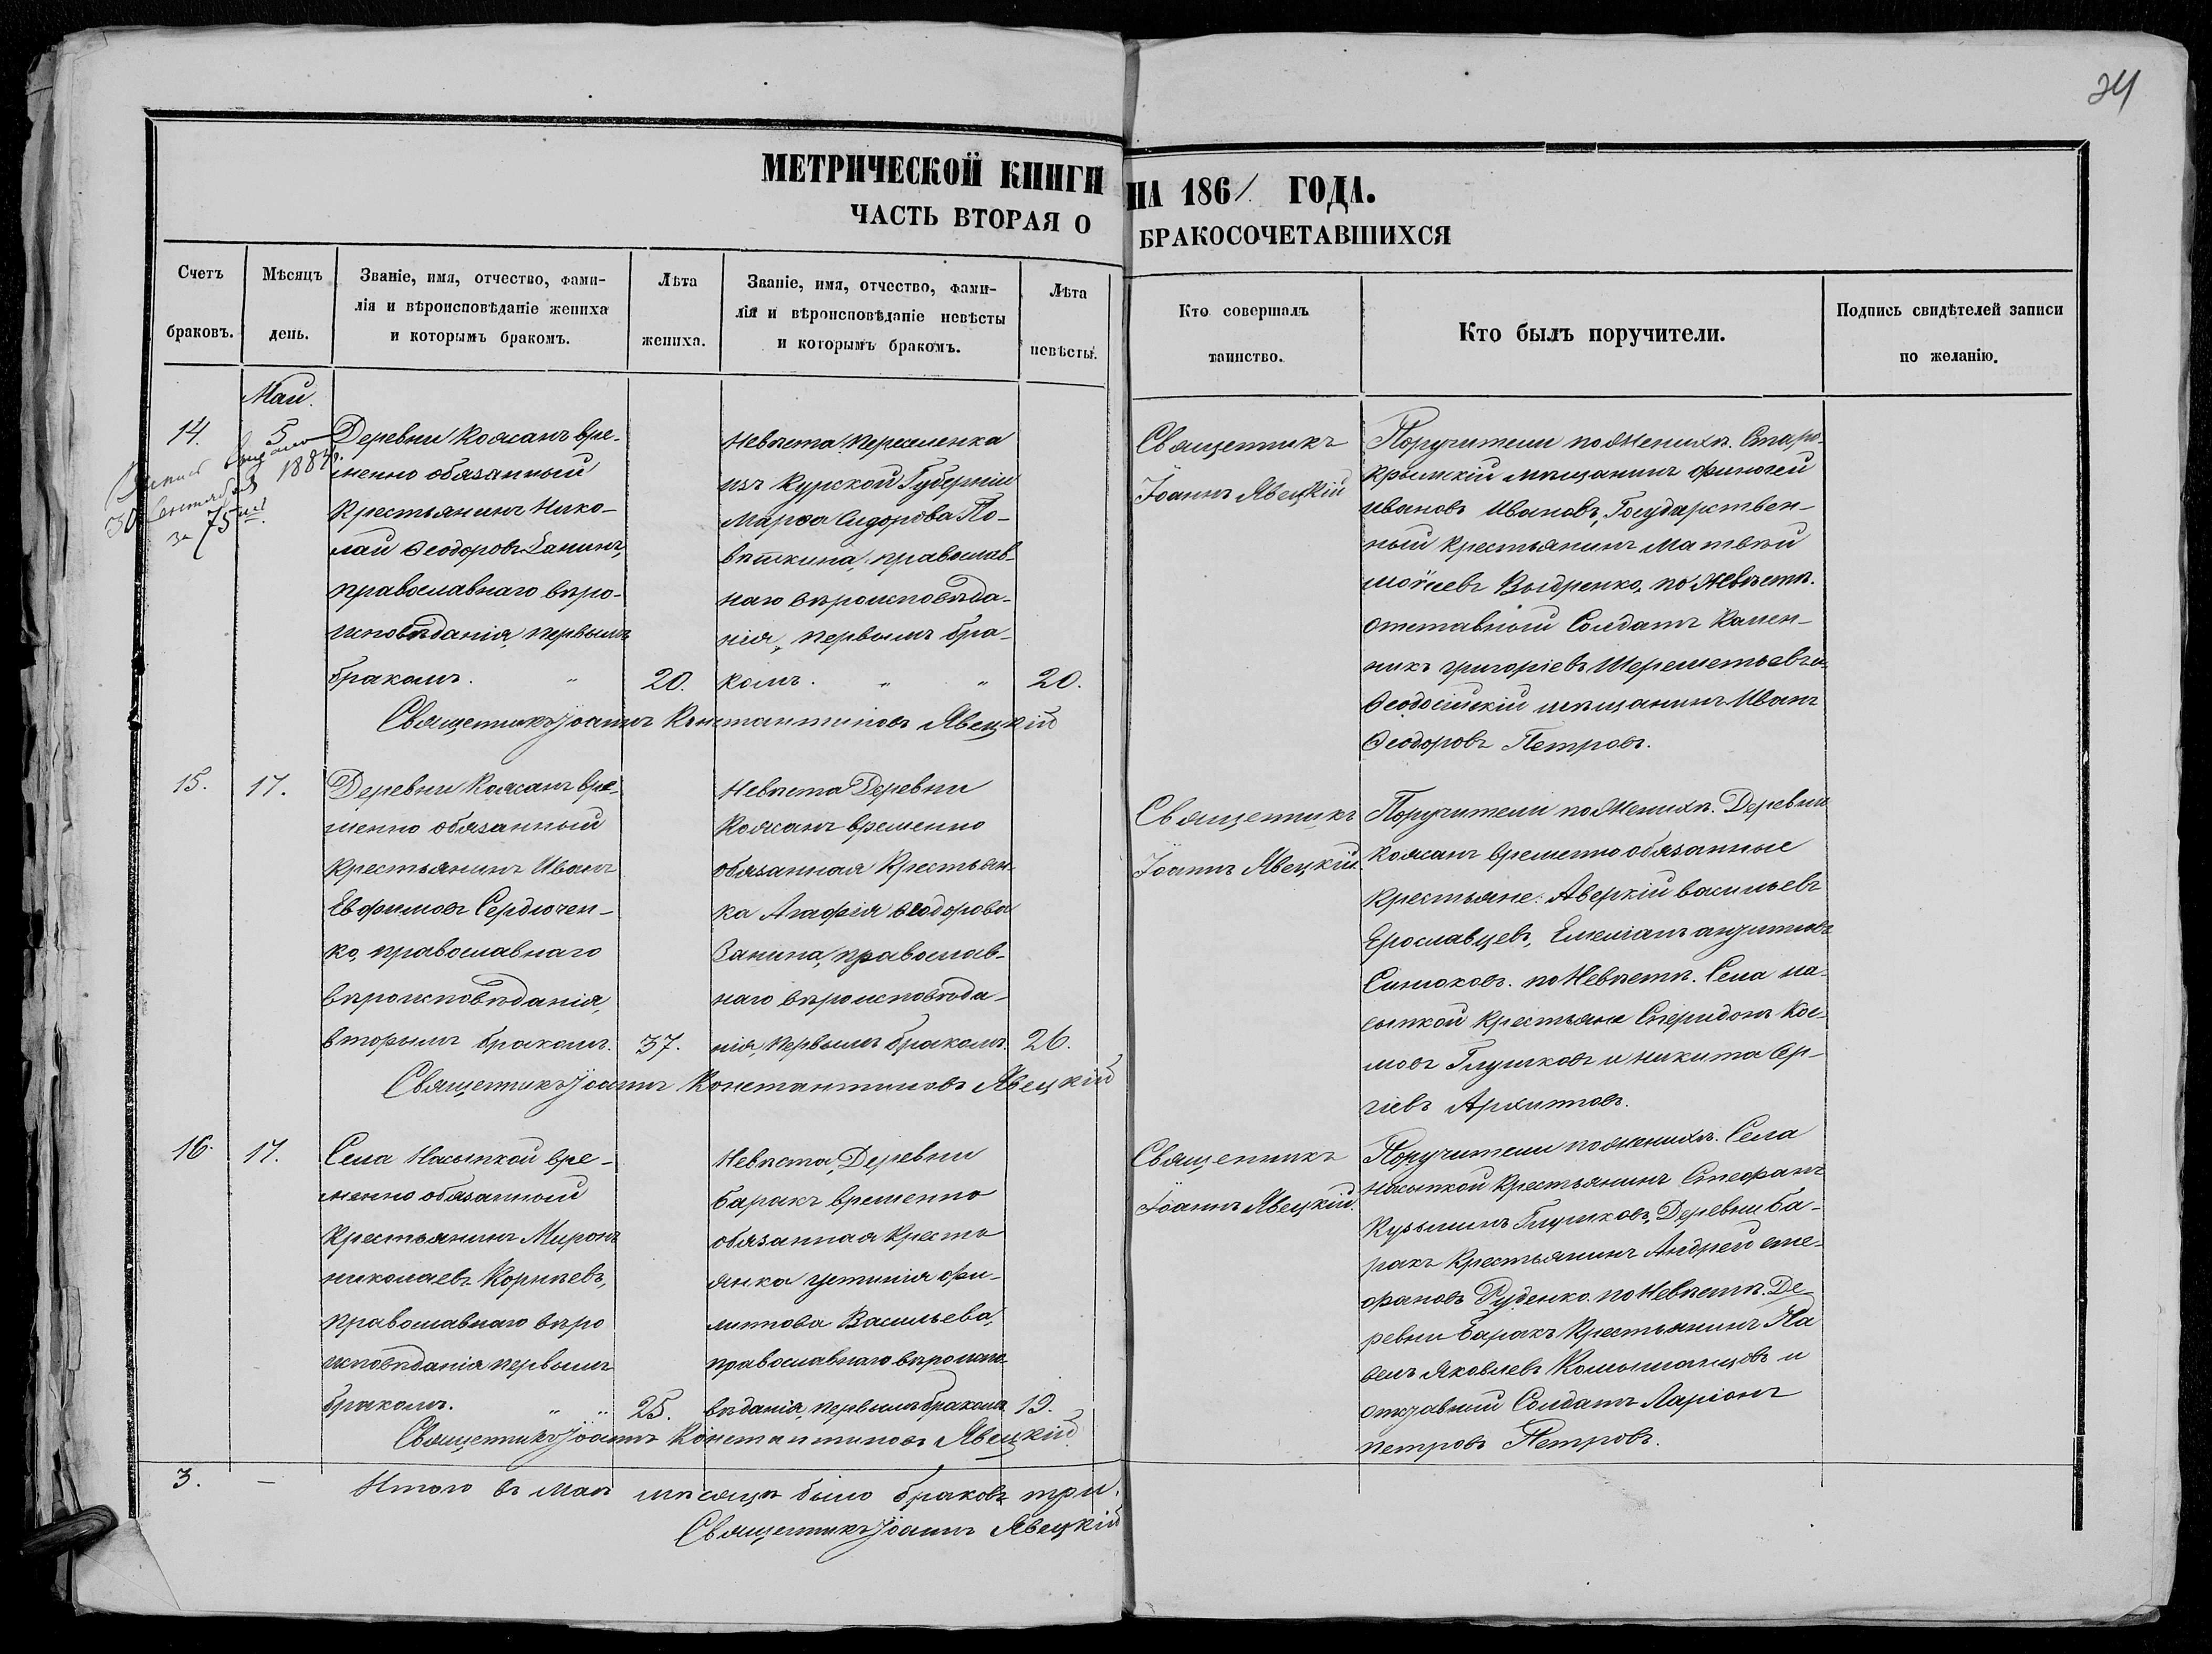 34
МЕТРИЧЕСКОЙ КНИГИ НА 1861 ГОДА.
ЧАСТЬ ВТОРАЯ О БРАКОСОЧЕТАВШИХСЯ
Счетъ
браковъ.
Мѣсяцъ
день.
Званіе, имя, отчество, фами-
лія и вѣроисповѣданіе жениха
и которымъ бракомъ.
Лѣта
жениха.
Званіе, имя, отчество, фами-
лія и вѣроисповѣданіе невѣсты
и которымъ бракомъ.
Лѣта
невѣсты.
Кто совершалъ
таинство.
Кто былъ поручители.
Подпись свидѣтелей записи
по желанію.
Май.
14.
5
30 Сентября 188
за 75
Деревни Коясанъ вре-
менно обязанный
Крестьянинъ Нико-
лай Ѳеодоровъ Занинъ,
православнаго вѣро-
исповѣданія, первымъ
бракомъ. "
20.
Невѣста переселенка
изъ Курской Губерніи
Марѳа Сидорова По-
вѣткина, православ-
наго вѣроисповѣда-
нія, первымъ бра-
комъ. " "
20.
Священникъ Іоаннъ Константиновъ Явецкій
Священникъ
Іоаннъ Явецкій
Поручители по Женихѣ. Старо-
крымскій мѣщанинъ
ивановъ Ивановъ, Государствен-
ный крестьянинъ Матвѣй
моѵсеевъ Выдренко, по Невѣстѣ.
отставный Солдатъ Камен-
никъ григоріевъ Шереметьевъ и
Ѳеодосійскій мѣщанинъ Иванъ
Ѳеодоровъ Петровъ.
15.
17.
Деревни Коясанъ вре-
менно обязанный
крестьянинъ Иванъ
Евфимовъ Сердючен-
ко, православнаго
вѣроисповѣданія,
вторымъ бракомъ.
37.
Невѣста Деревни
Коясанъ временно
обязанная Крестьян-
ка Агафія Ѳеодорова
Занина, православ-
наго вѣроисповѣда-
нія, первымъ бракомъ.
26.
Священникъ Іоаннъ Константиновъ Явецкій
Священникъ
Іоаннъ Явецкій.
Поручители по Женихѣ. Деревни
Коясанъ временно обязанные
крестьяне: Аверкій васильевъ
Ерославцевъ, Емеліанъ
Синюковъ. по Невѣстѣ. Села на-
сыпкой крестьяне Спиридонъ Кос-
мовъ Глушковъ и никита Сер-
гіевъ Архиповъ.
16.
17.
Села Насыпкой вре-
менно обязанный
крестьянинъ Миронъ
николаевъ Корнѣевъ,
православнаго вѣро
исповѣданія первымъ
бракомъ. " "
25.
Невѣста, Деревни
Баракъ временно
обязанная Кресть
янка устинія фи-
липпова Васильева,
православнаго вѣроиспо-
вѣданія, первымъ бракомъ
19.
Священникъ Іоаннъ Константиновъ Явецкій.
Священникъ
Іоаннъ Явецкій.
Поручители по женихѣ. Села
насыпкой крестьянинъ Стефанъ
Кузьминъ Глушковъ, Деревни Ба-
ракъ Крестьянинъ Андрей сте-
фановъ Руденко. по Невѣстѣ. Де-
ревни Баракъ Крестьянинъ Па
велъ Яковлевъ и
отставный Солдатъ Ларіонъ
петровъ Петровъ.
3. — Итого въ маѣ мѣсяцѣ было браковъ три.
Священникъ Іоаннъ Явецкій